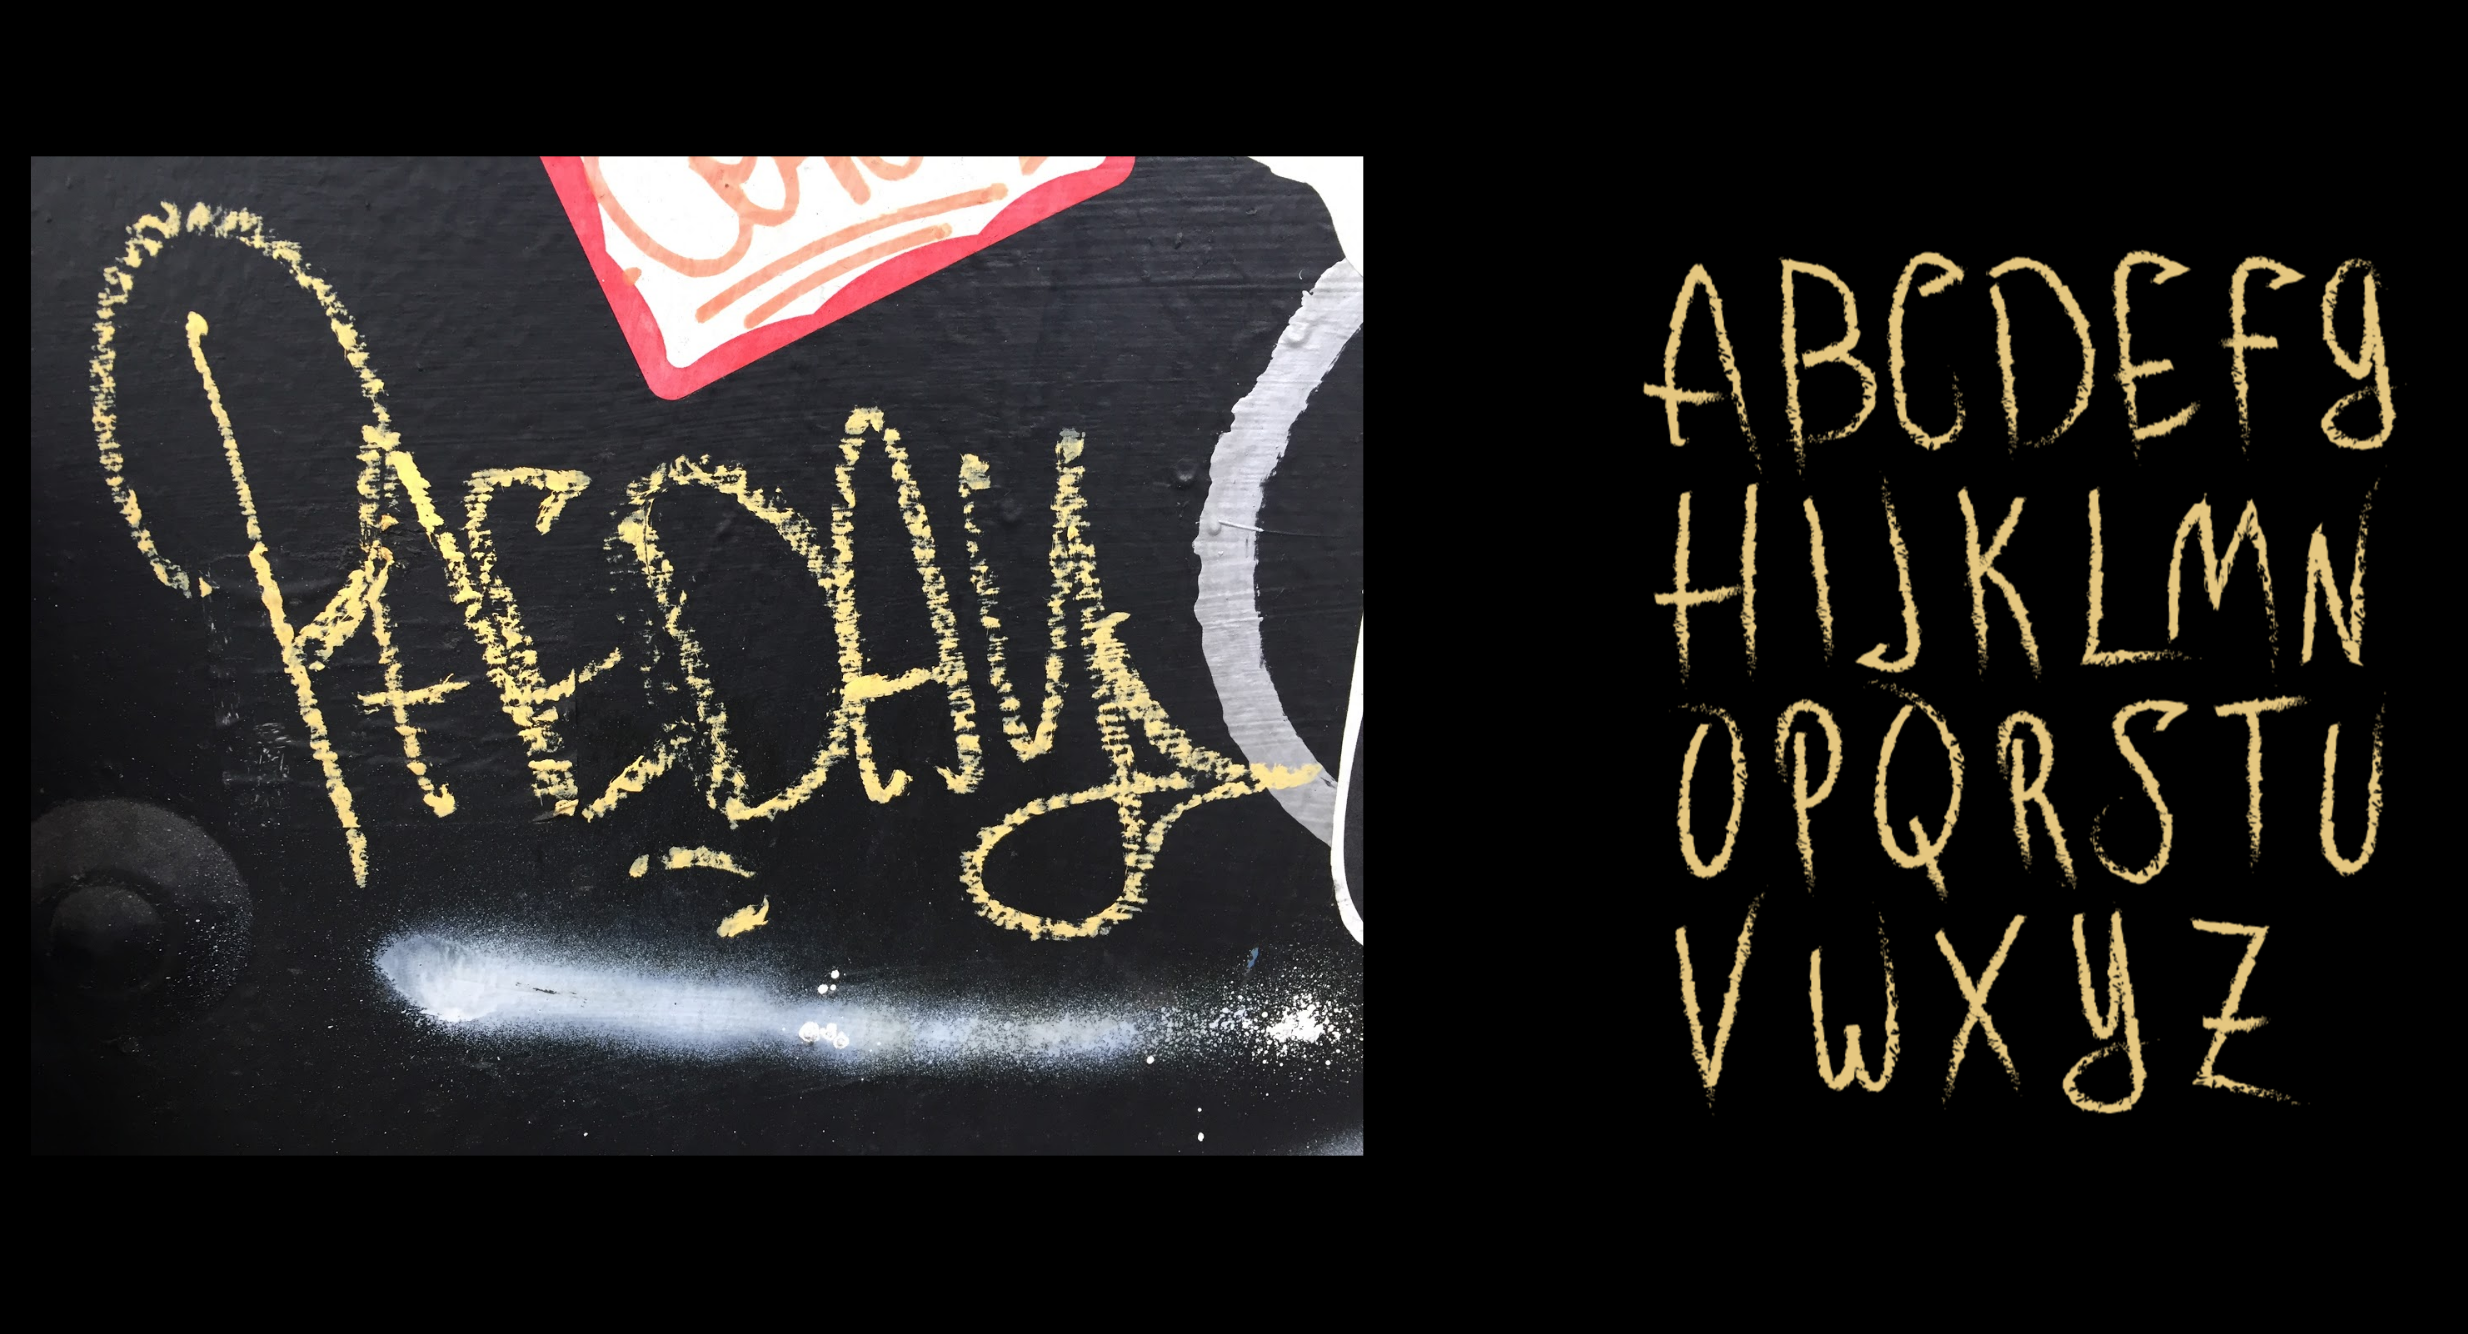 PAEDAY
ABCDEFg
HIJKLMN
OPQRSTU
VWXyZ